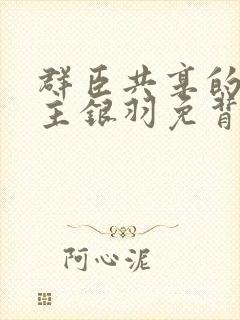 群臣共享的
主银羽免背
阿心泥